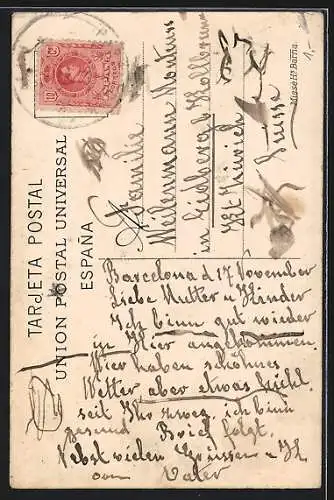 TARJETA POSTAL
UNION POSTAL UNIVERSAL
ESPAÑA
Familie
Weilenmann
in Eidberg b. Kollbrunn
Kt Zürich
Suisse
Missé Hs Barna.
1,-
Barcelona d 17 November
Liebe Mutter u Kinder
Ich binn gut wieder
in Hier angekommen.
Wier haben schönes
Wetter aber etwas
seit Ihr weg. ich binn
gesund Brief folgt.
Nebst vielen Grüssen u
von Vater